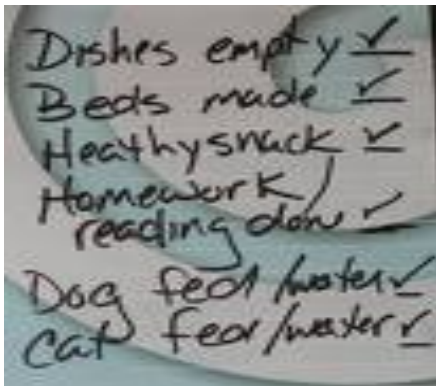 Dishes empty ✓
Beds made ✓
Heathy snack ✓
Homework/
reading done ✓
Dog fed/water ✓
Cat fed/water ✓